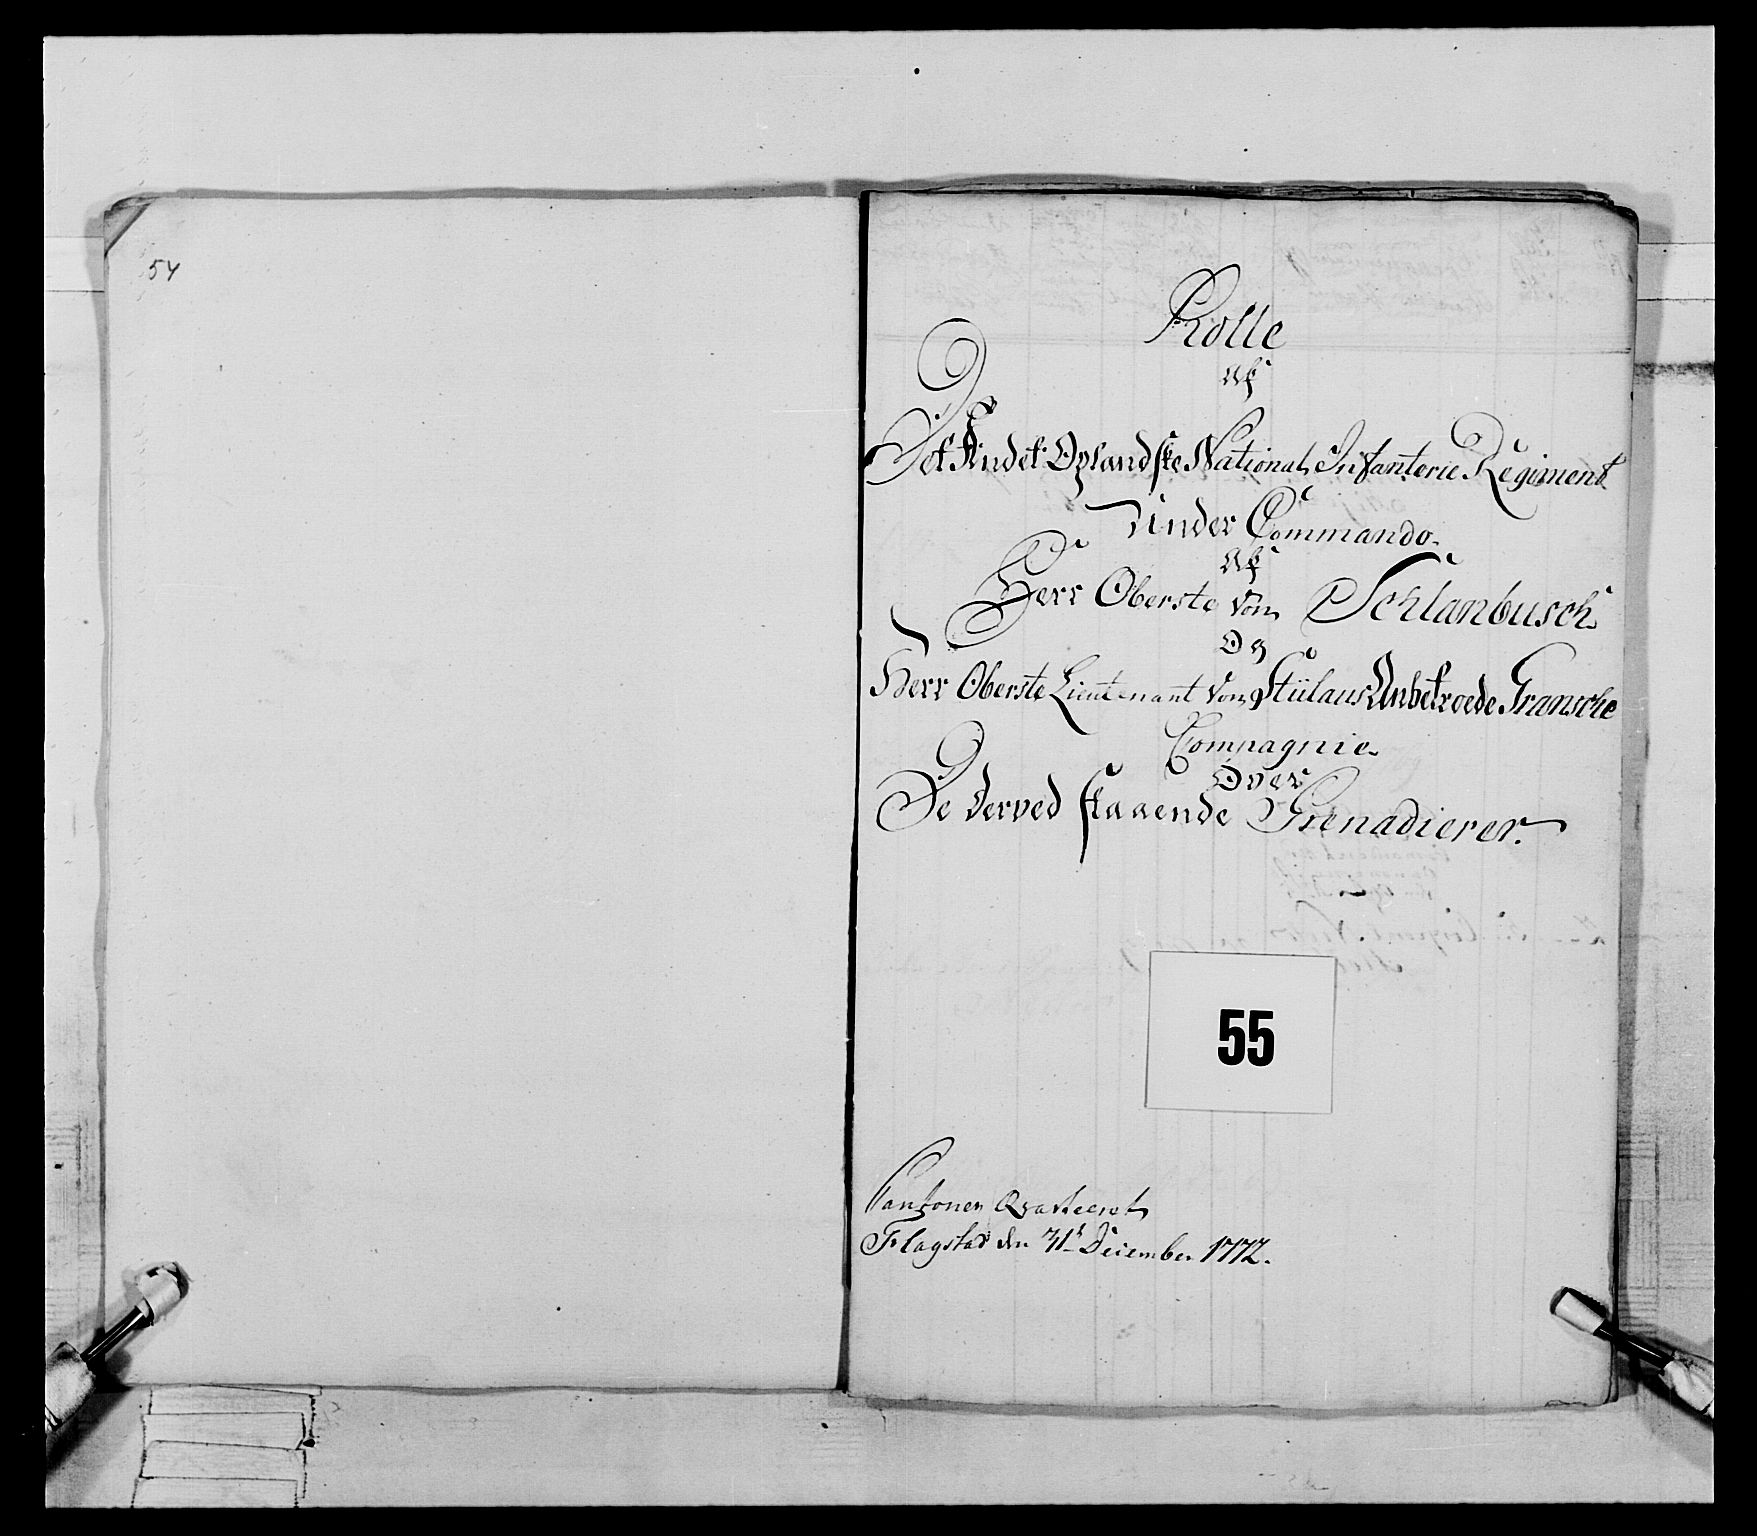 54
Rolle
Af
Det Andet Oplandske National Infanterie Regiment
Under Commando
Af
Herr Oberste von Schlanbusch
Og
Herr Oberste Lieutenant von Stülaus Anbetroede Gransche
Compagnie
Over
De derved staaende Grenadierer.
55
Cantonen Qvarteeret
Flagstad den 31t December 1772.